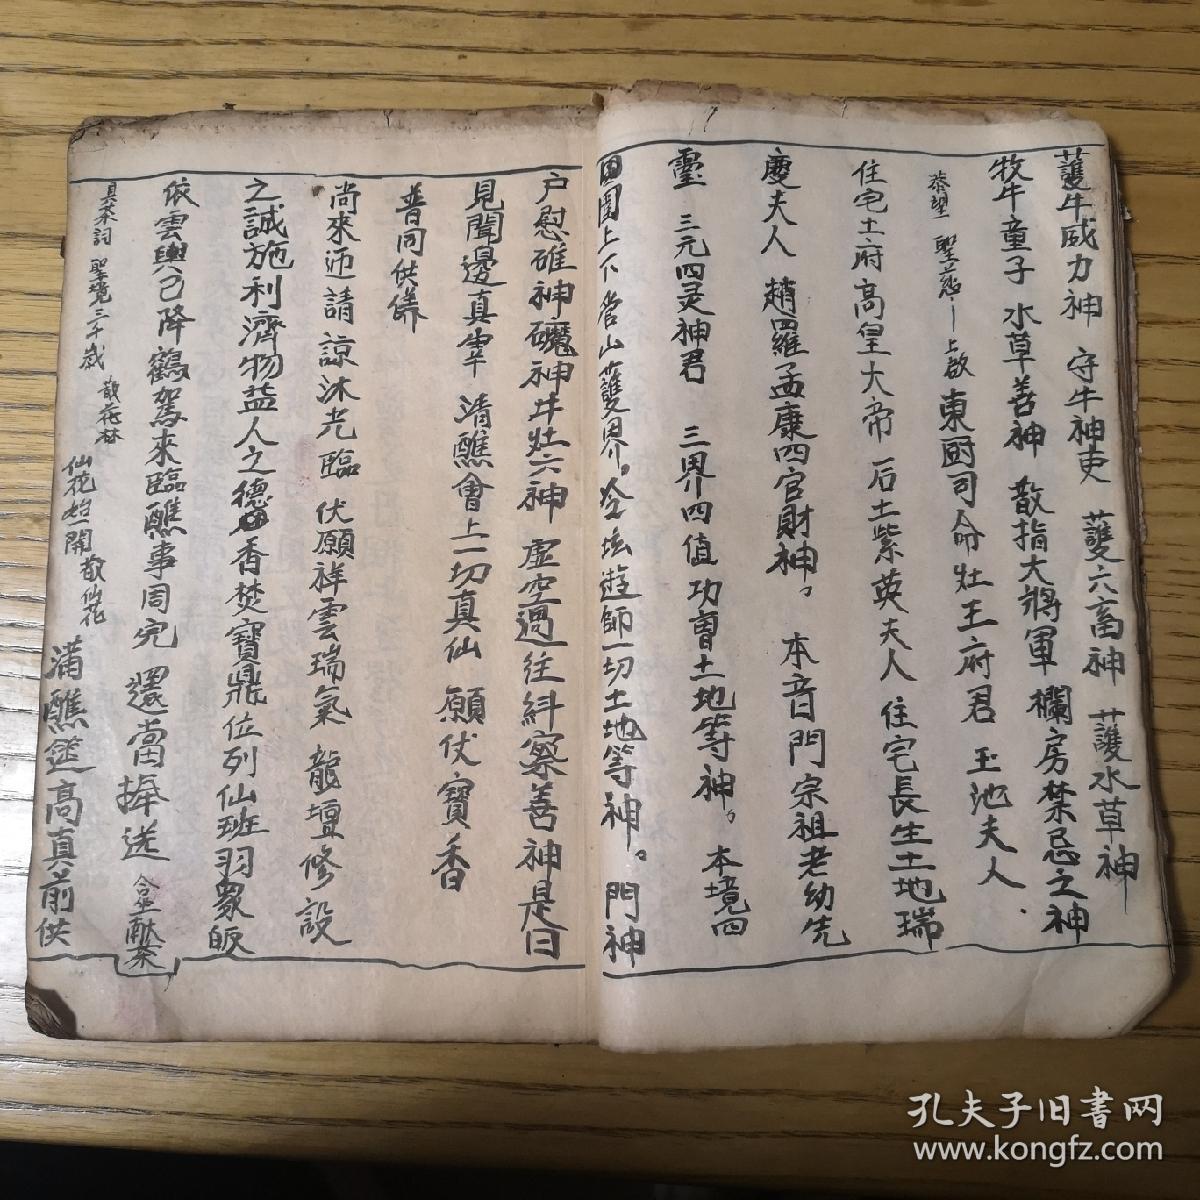 護牛威力神 守牛神吏 護六畜神 護水草神
牧牛童子 水草善神 散指大將軍 欄房禁忌之神
恭望 聖慈 上啟 東厨司命灶王府君 玉池夫人
住宅土府高皇大帝 后土紫英夫人 住宅長生土地瑞
慶夫人 趙羅孟康四官財神 本音門宗祖老幼先
靈 三元四灵神君 三界四值功曹土地等神 本境四
田園上下 管山護界 今坛遊師一切土地等神 門神
户慰碓神磯神井灶六神 虚空過往糾察善神是日
見聞邊真宰 清醮會上一切真仙 願伏寶香
普同供養
尚來迊請諒沐光臨 伏願祥雲瑞氣 龍壇修設
之誠施利濟物益人之德 香焚寶鼎位列仙班羽衆皈
依雲輿已降鶴駕来臨醮事周完 還當捧送 献茶
真茶詞 聖境三千歲 散花林 仙花始開 散仙花 满醮筵高真前供
孔夫子旧书网
www.kongfz.com